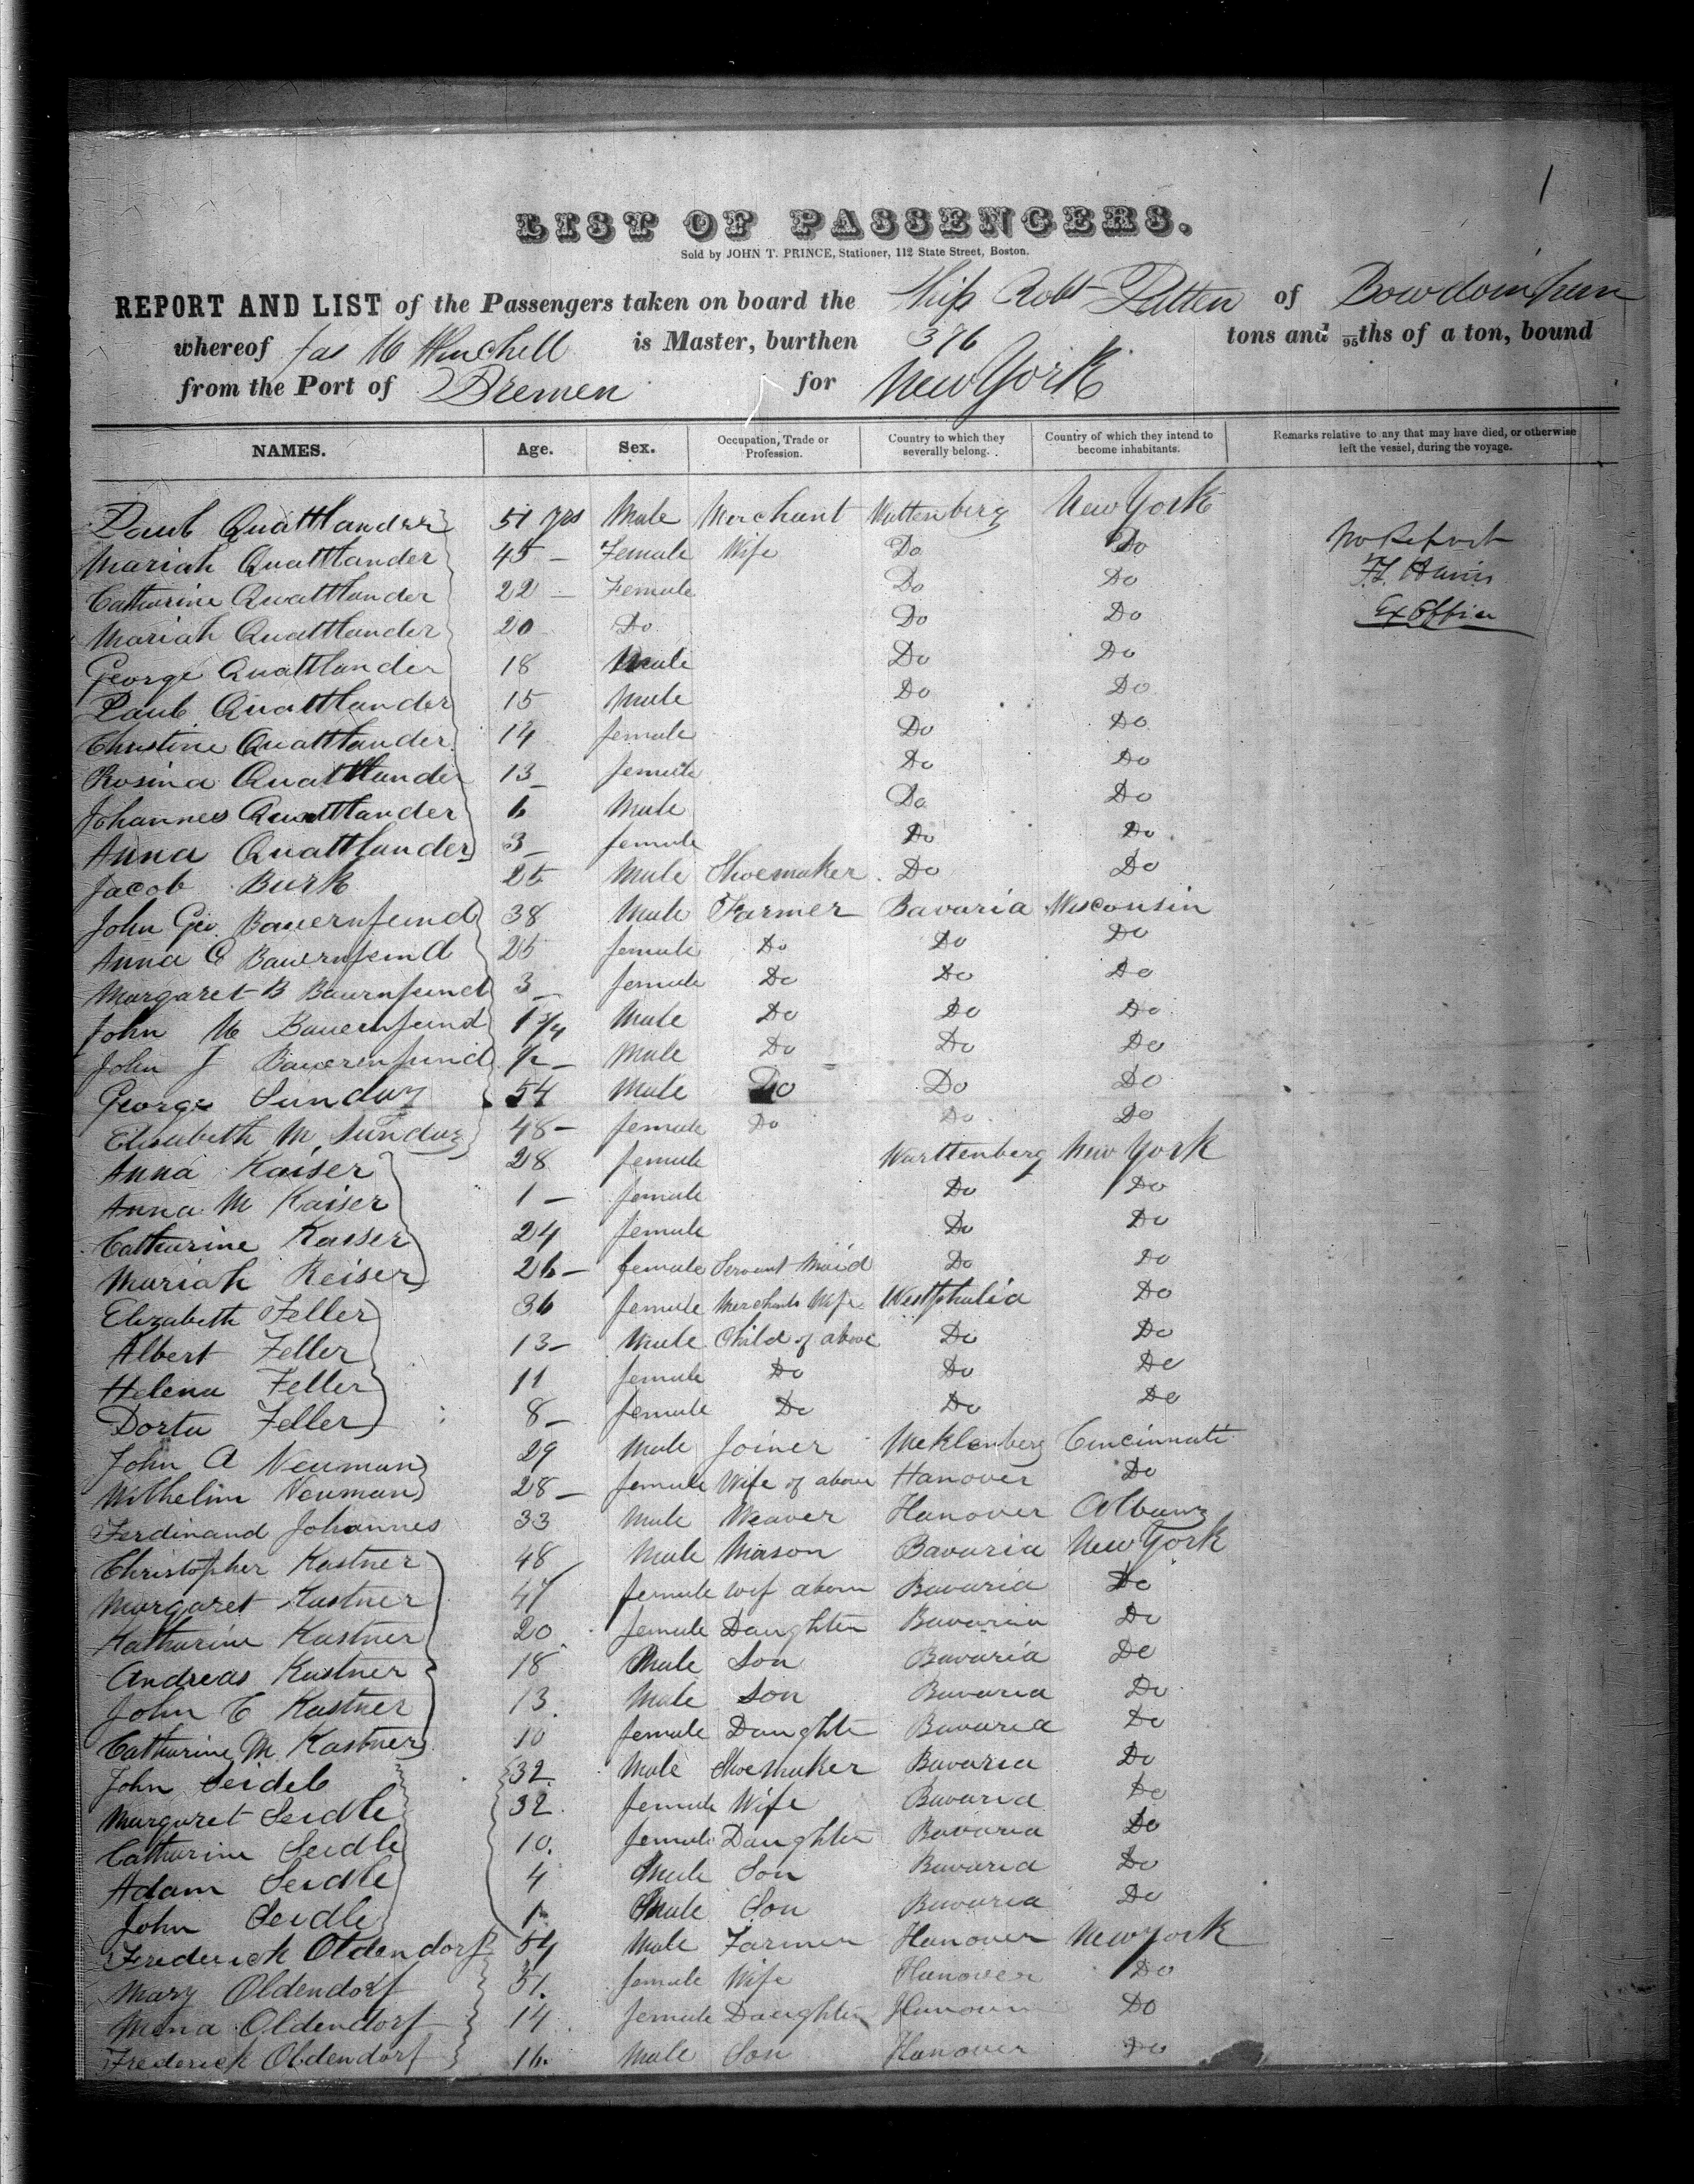 1
LIST OF PASSENGERS.
Sold by JOHN T. PRINCE, Stationer, 112 State Street, Boston.
REPORT AND LIST of the Passengers taken on board the Ship Robt Patten of Bowdoinham
whereof Jas M Winchell is Master, burthen 376 tons and 95ths of a ton, bound
from the Port of Bremen for New York
NAMES. Age. Sex. Occupation, Trade or Profession. Country to which they severally belong. Country of which they intend to become inhabitants. Remarks relative to any that may have died, or otherwise left the vessel, during the voyage.
Paul Quattlander 51 yrs Male Merchant Wuttenberg New York
Mariah Quattlander 45 — Female Wife Do Do No Report
Catharine Quattlander 22 — Female Do Do
Mariah Quattlander 20 Do Do Do Ex Office
George Quattlander 18 Male Do Do
Paul Quattlander 15 Male Do Do
Christine Quattlander 14 female Do Do
Rosina Quattlander 13 female Do Do
Johannes Quattlander 6 Male Do Do
Anna Quattlander 3 female Do Do
Jacob Burk 25 Male Shoemaker Do Do
John Geo Bauernfeind 38 Male Farmer Bavaria Wisconsin
Anna C Bauernfeind 25 female Do Do Do
Margaret B Baurnfeind 3 female Do Do Do
John M Bauernfeind 1 3/4 Male Do Do Do
John J Bauernfeind 1/2 Male Do Do Do
George Sunday 54 Male Do Do Do
Elisabeth M Sunday 48 — female Do Do Do
Anna Kaiser 28 female Wurttenberg New York
Anna M Kaiser 1 — female Do Do
Catharine Kaiser 24 female Do Do
Mariah Keiser 26 — female Servant Maid Do Do
Elizabeth Feller 36 female Merchants Wife Westphalia Do
Albert Feller 13 — Male Child of above Do Do
Helena Feller 11 female Do Do Do
Dorta Feller 8 — female Do Do Do
John A Neuman 29 Male Joiner Meklenberg Cincinnati
Wilhelim Neuman 28 — female Wife of above Hanover Do
Ferdinand Johannes 33 Male Weaver Hanover Albany
Christopher Kastner 48 Male Mason Bavaria New York
Margaret Kastner 47 female wif above Bavaria Do
Katharine Kastner 20 female Daughter Bavaria Do
Andreas Kastner 18 Male Son Bavaria Do
John C Kastner 13 Male Son Bavaria Do
Catharine M. Kastner 10 female Daughte Bavaria Do
John Seidel 32 Male Shoemaker Bavaria Do
Margaret Seidle 32 female Wife Bavaria Do
Catharine Seidle 10 female Daughter Bavaria Do
Adam Seidle 4 Male Son Bavaria Do
John Seidle 1 Male Son Bavaria Do
Frederick Oldendorf 54 Male Farmer Hanover New York
Mary Oldendorf 51 female Wife Hanover Do
Mena Oldendorf 14 female Daughter Hanover Do
Frederick Oldendorf 16 Male Son Hanover Do